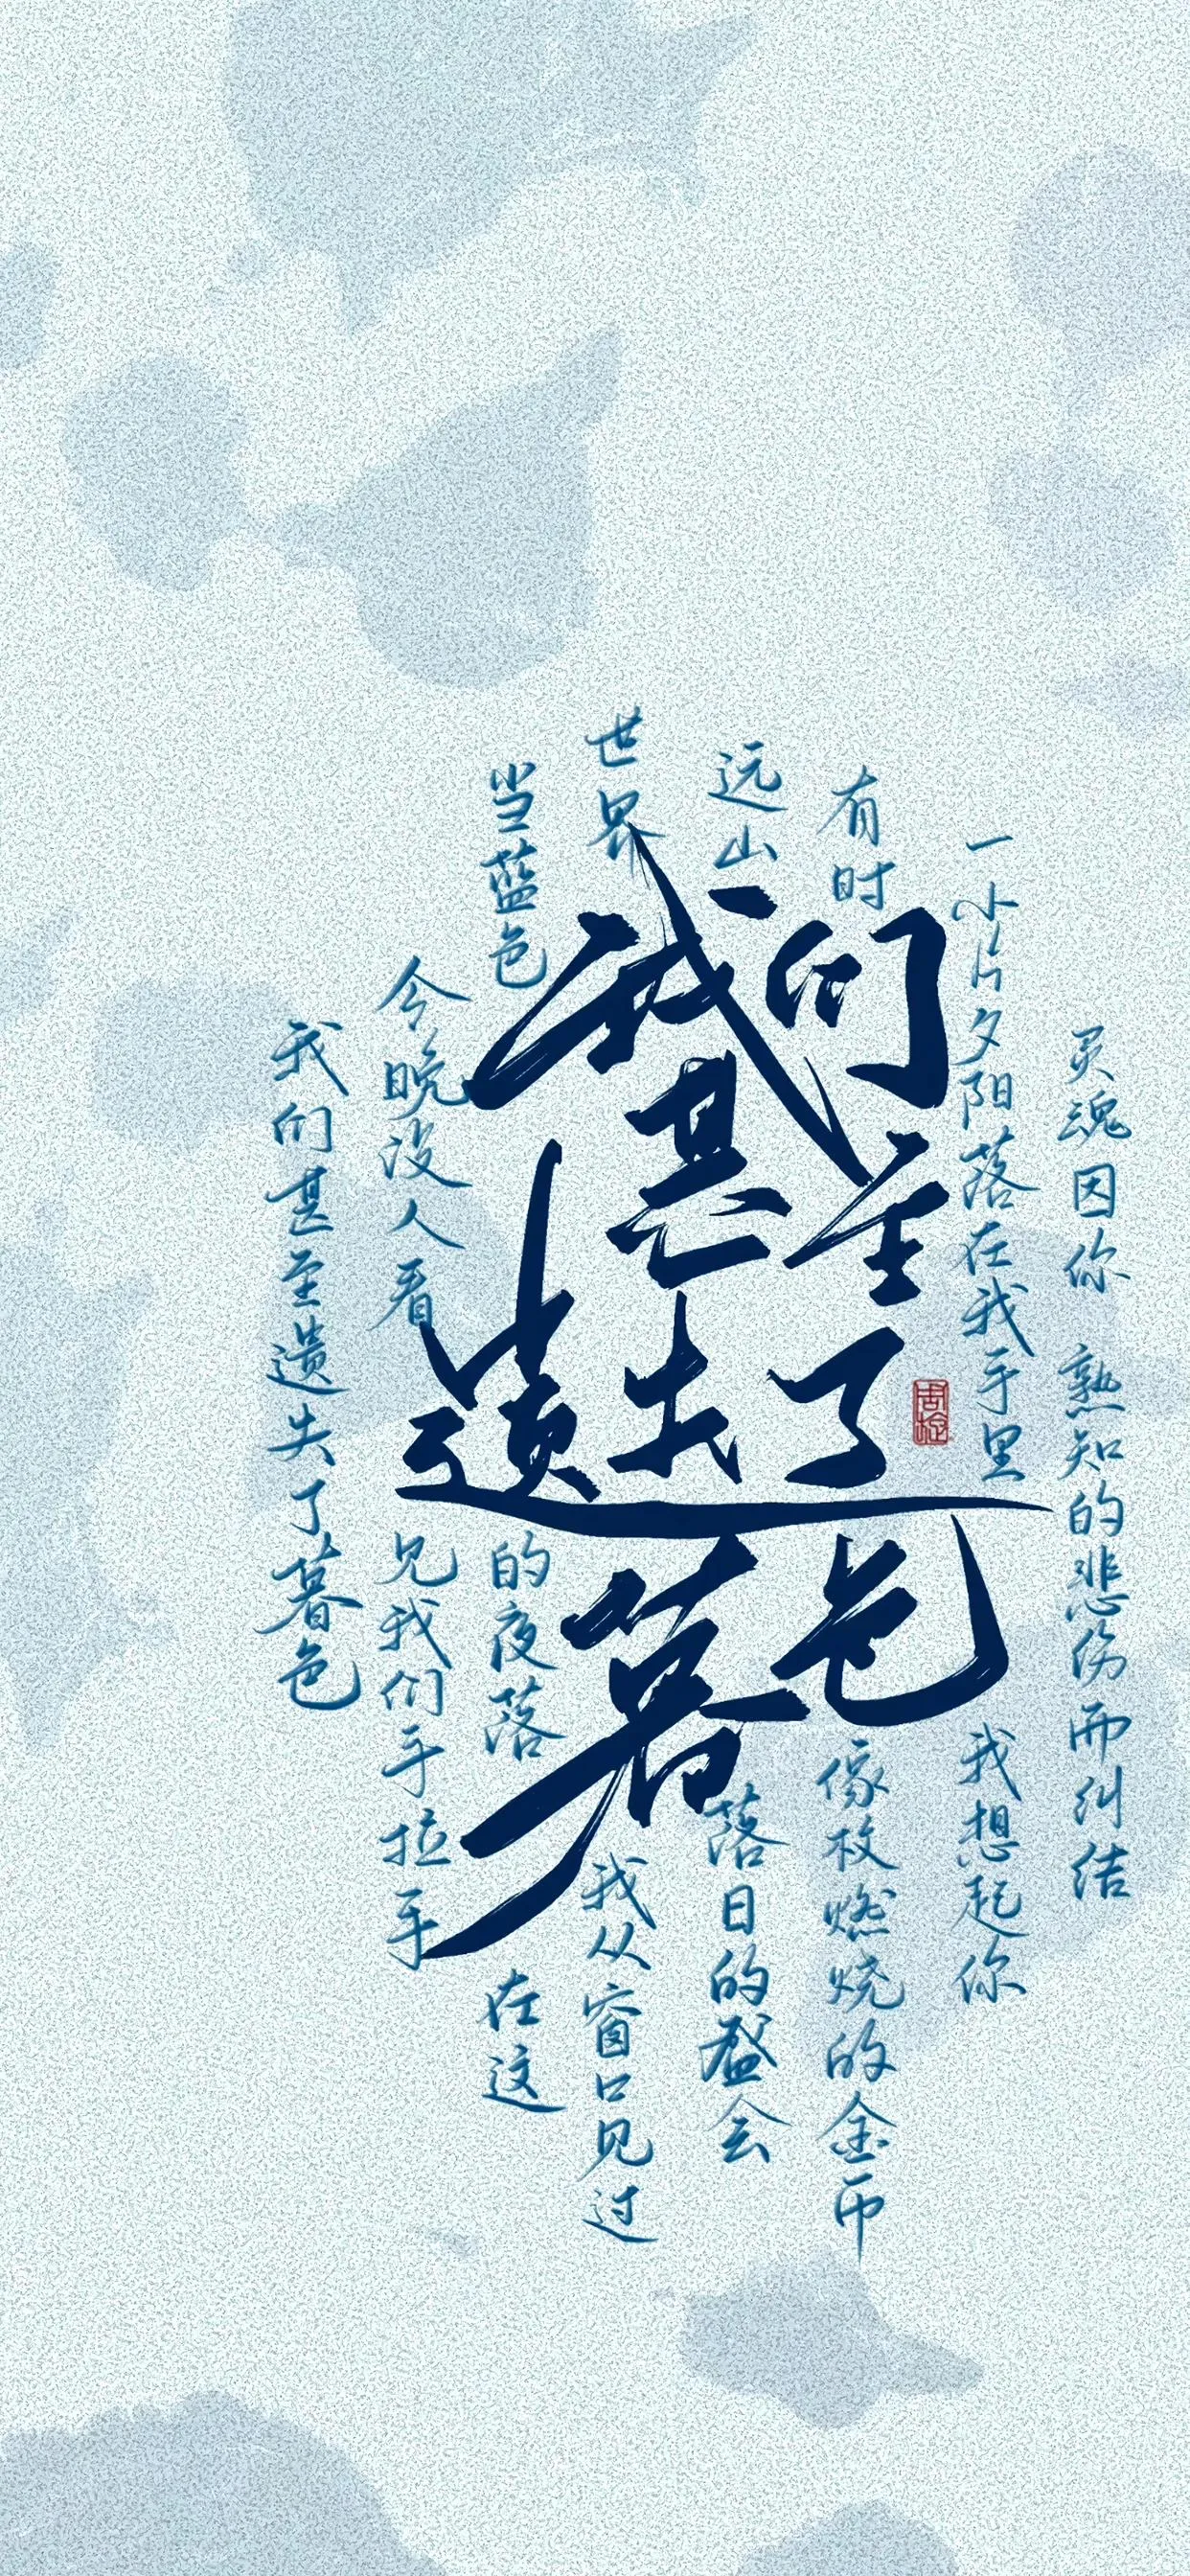 我们
甚至
遗失了
暮色
我们甚至遗失了暮色
今晚没人看见我们手拉手
当蓝色的夜落在这
世界 我从窗口见过
远山落日的盛会
有时 像枚燃烧的金币
一小片夕阳落在我手里 我想起你
灵魂因你 熟知的悲伤而纠结